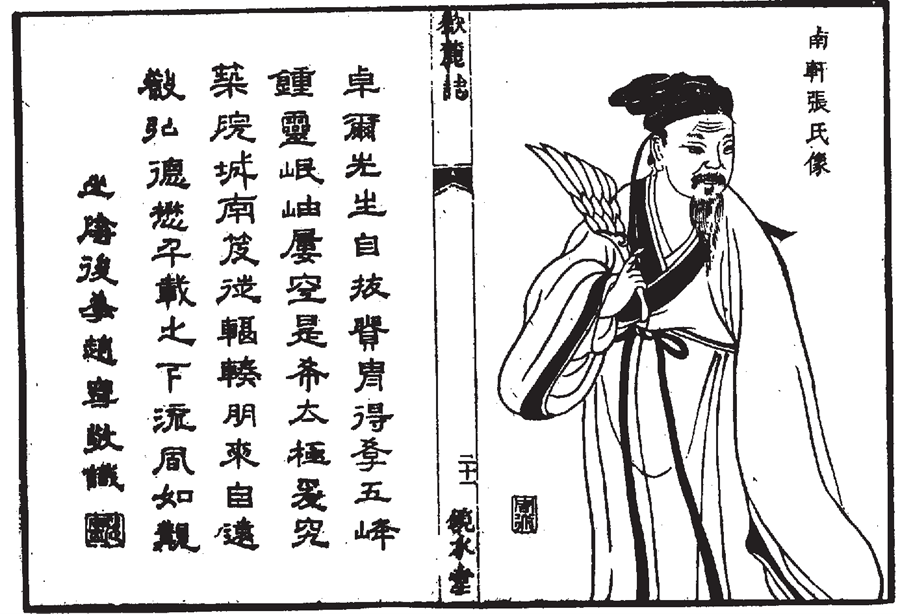 南軒張氏像
麓誌
二十一
鏡水堂
卓爾先生自拔胄得學五峰
鍾靈岷岫屢空是希太極爰究
築院城南笈從輻輳朋來自遠
敎弘德懋千載之下流風如覯
山陰後學趙寧敬識